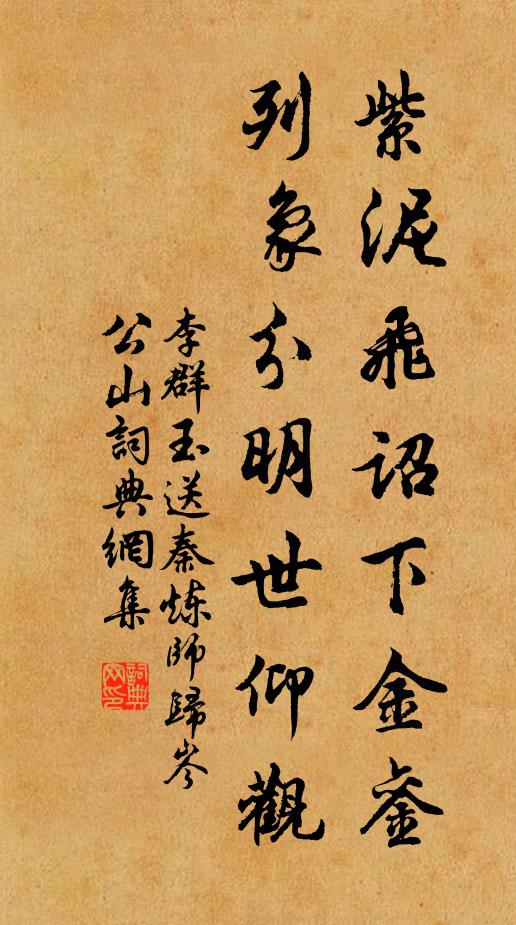 紫泥飛詔下金銮
列象分明世仰觀
李群玉送秦炼師歸岑
公山詞典網集
詞典
网印